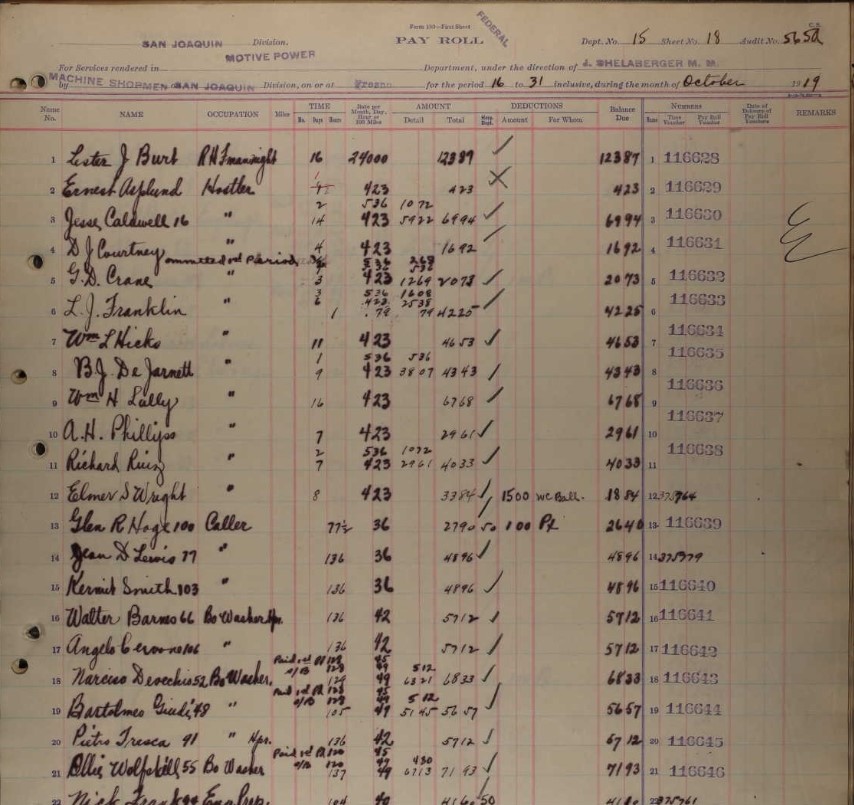 C.S.
Form 139—First Sheet FEDERAL
SAN JOAQUIN Division, PAY ROLL Dept. No. 15 Sheet No. 18 Audit No. 565a
MOTIVE POWER
For Services rendered in Department, under the direction of J. SHELABERGER M. M.
by MACHINE SHOPMEN SAN JOAQUIN Division, on or at Fresno for the period 16 to 31 inclusive, during the month of October 1919
Name No. NAME OCCUPATION Miles TIME Days Hours Rate per Month, Day, Hour or 100 Miles AMOUNT Detail Total DEDUCTIONS Amount For Whom Balance Due NUMBERS Time Voucher Pay Roll Voucher Date of Delivery of Pay Roll Vouchers REMARKS
1 Lester J Burt 16 24000 12387 12387 1 116628
2 Ernest Asplund Hostler 1 423 423 423 2 116629
2 536 1072
3 Jesse Caldwell 16 " 14 423 5922 6994 6994 3 116630
4 D J Courtney " 4 423 1692 1692 4 116631
5 G. D. Crane " 3 423 1269 2073 2073 5 116632
3 536 1608
6 423 2538
6 L. J. Franklin " 1 .79 79 4225 4225 6 116633
7 Wm L Hicks " 11 423 4653 4653 7 116634
1 536 536
8 B. J. De Jarnett " 9 423 3807 4343 4343 8 116635
9 Wm H Lally " 16 423 6768 6768 9 116636
10 A. H. Phillips " 7 423 2961 2961 10 116637
2 536 1072
11 Richard Ruiz " 7 423 2961 4033 4033 11 116638
12 Elmer S Wright " 8 423 3384 1500 1884 12 375964
13 Glen R Hoge 100 Caller 77½ 36 2790 50 100 2640 13 116639
14 Jean D Lewis 77 " 136 36 4896 4896 14 375979
15 Kermit Smith 103 " 136 36 4896 4896 15 116640
16 Walter Barnes 66 Bo Washer Hpr. 136 42 5712 5712 16 116641
17 Angelo 106 " 136 42 5712 5712 17 116642
512
18 Narciso Desechio 52 Bo Washer 129 49 6321 6833 6833 18 116643
512
19 Bartolmeo 48 " 105 49 5145 5657 5657 19 116644
20 Pietro Tresca 91 " Hpr. 136 42 5712 5712 20 116645
480
21 Ollie Wolfskill 55 Bo Washer 137 49 6713 7193 7193 21 116646
22 Nick Frank 104 40 4160 50